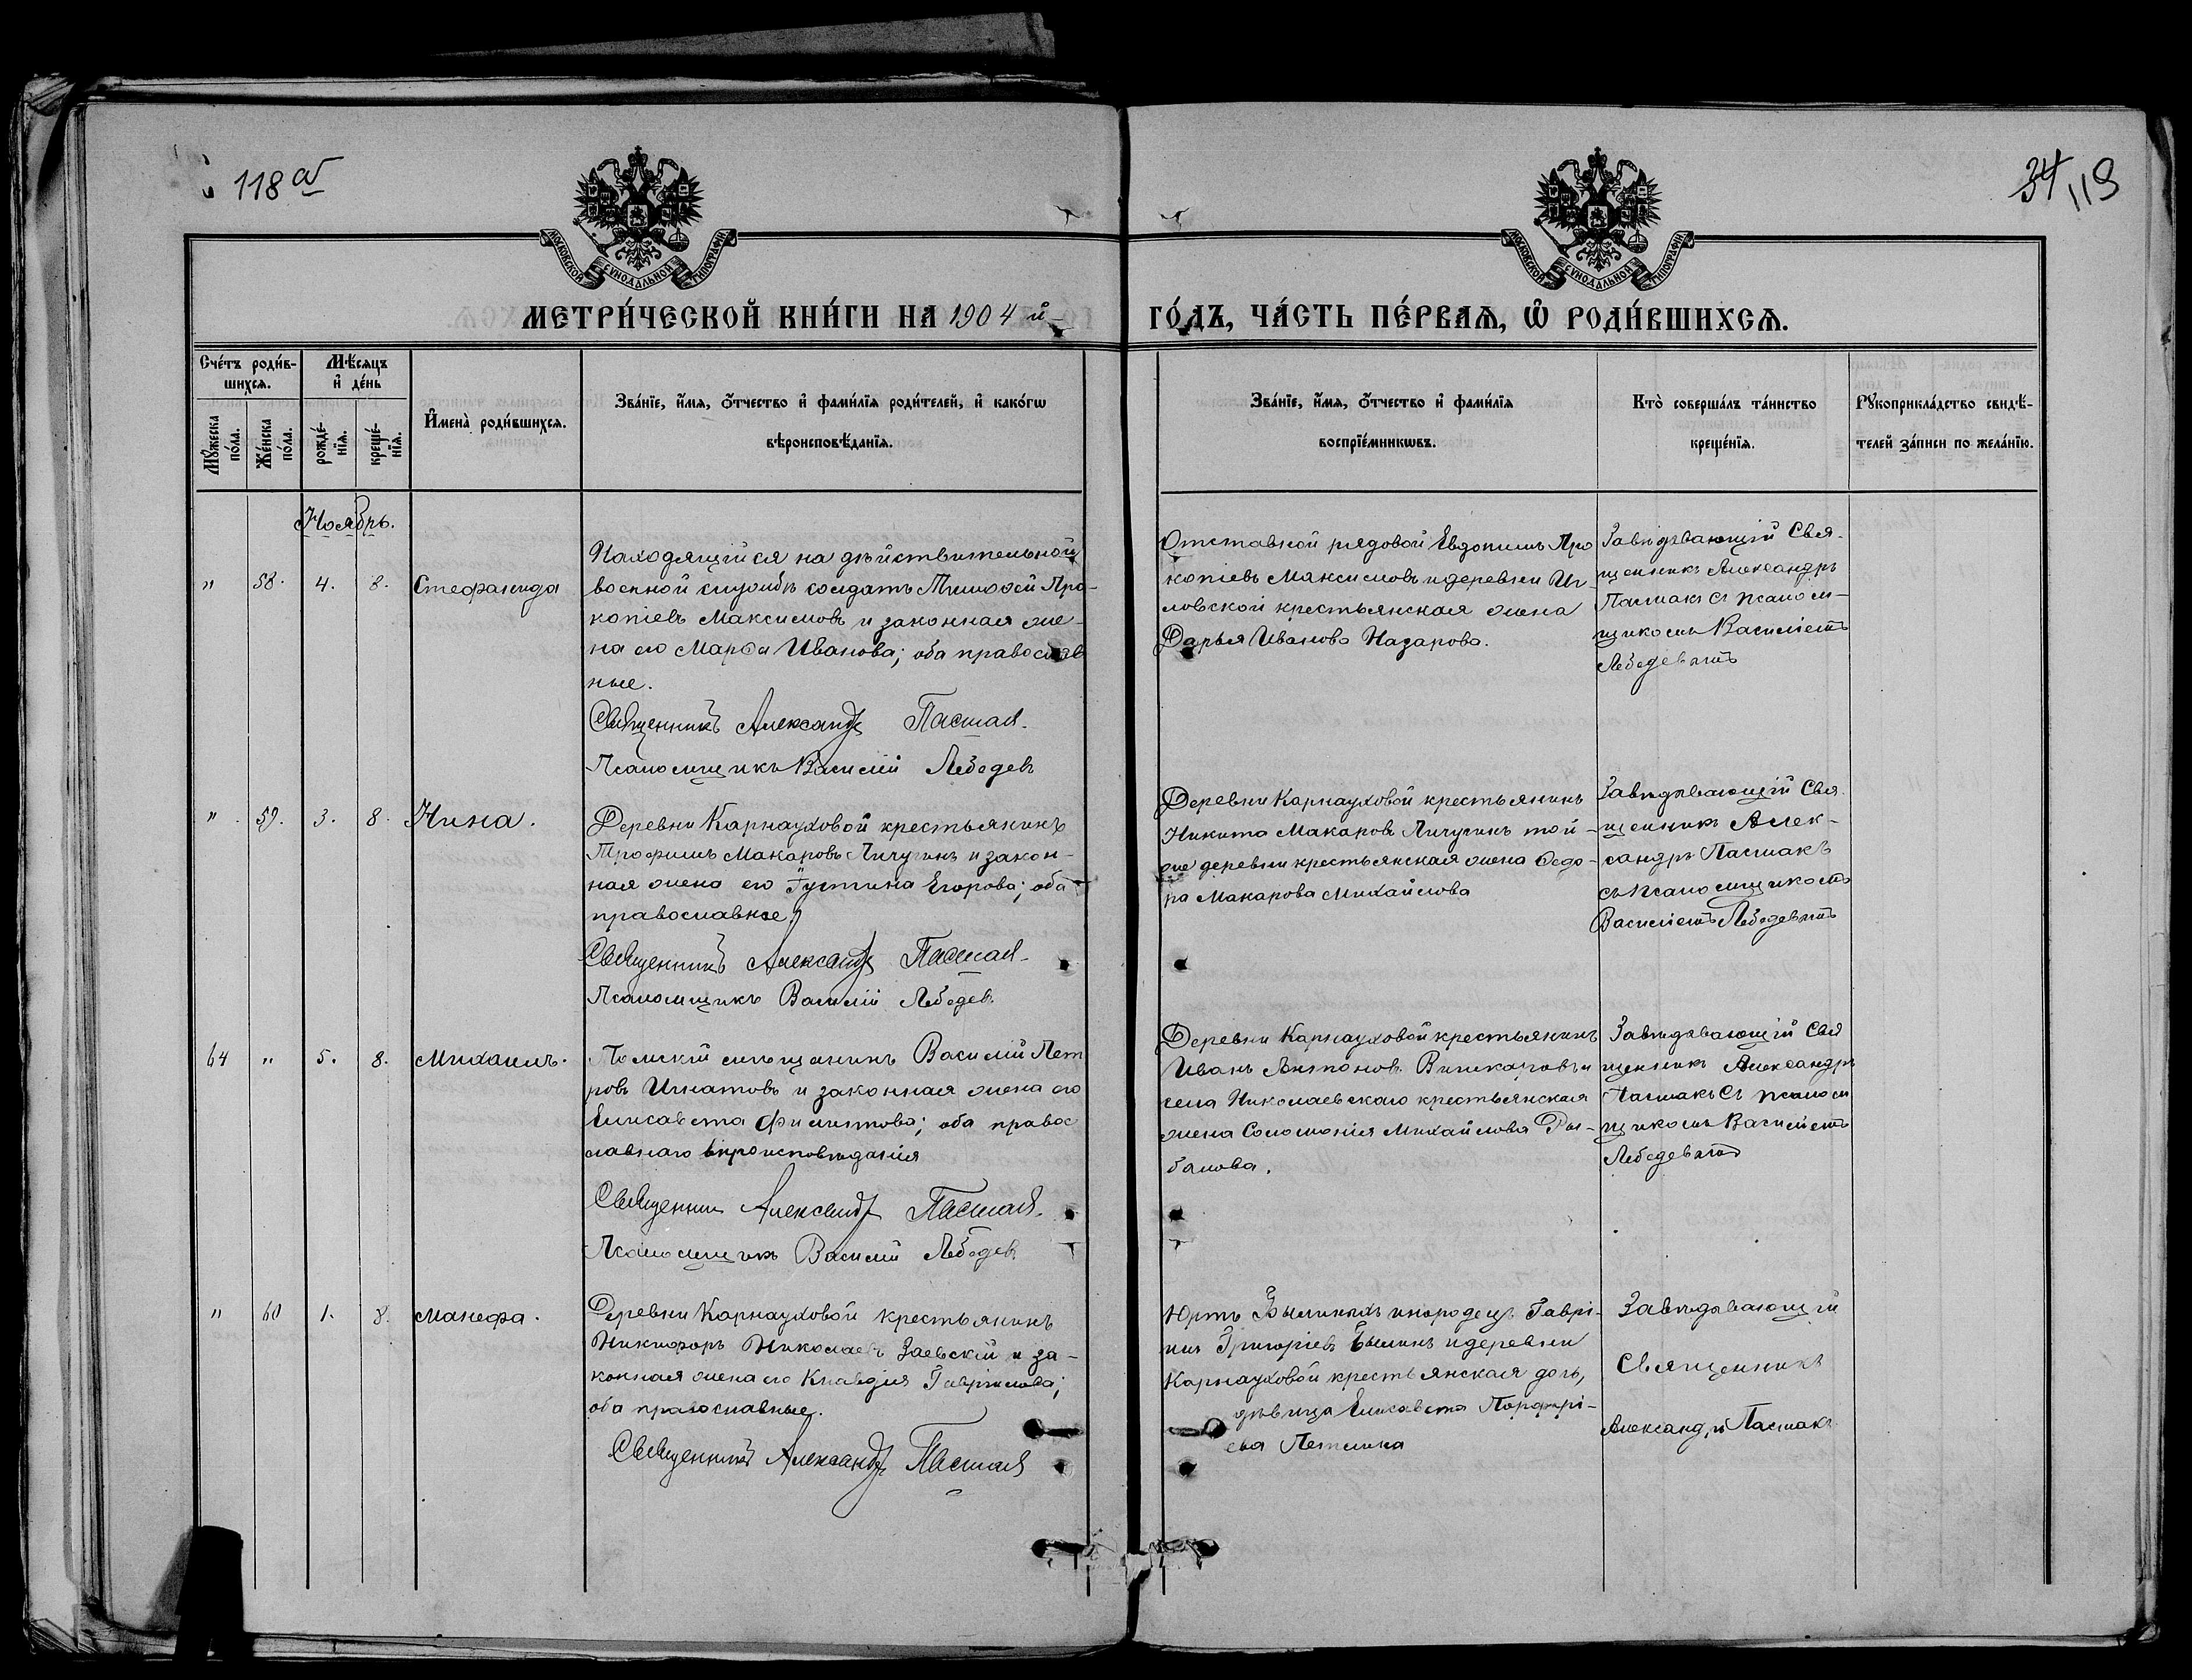 118 об
34 119
МОСКОВСКОЙ СѴНОДАЛЬНОЙ ТИПОГРАФІИ
МОСКОВСКОЙ СѴНОДАЛЬНОЙ ТИПОГРАФІИ
МЕТРИ́ЧЕСКОЙ КНИ́ГИ НА 1904 й
ГО́ДЪ, ЧА́СТЬ ПЕ́РВАѦ, Ѽ РОДИ́ВШИХСѦ.
Сче́тъ роди́в-
шихсѧ.
Мѣ́сѧцъ
и҆ де́нь
Мꙋ́жеска
по́ла.
Же́нска
по́ла.
рожде́-
нїѧ.
креще́-
нїѧ.
И҆мена̀ роди́вшихсѧ.
Зва́нїе, и҆́мѧ, ѻ҆́тчество и҆ фами́лїѧ роди́телей, и҆ како́гѡ
вѣроисповѣ́данїѧ.
Зва́нїе, и҆́мѧ, ѻ҆́тчество и҆ фами́лїѧ
воспрїе́мникѡвъ.
Кто̀ соверша́лъ та́инство
креще́нїѧ.
Рꙋкоприкла́дство свидѣ́-
телей за́писи по жела́нїю.
Ноябрь.
" 58. 4. 8. Стефанида
Находящійся на дѣйствительной
военной службѣ солдатъ Тимоѳей Про-
копіевъ Максимовъ и законная же-
на его Марѳа Иванова; оба православ
ные.
Священникъ Александръ Пасмак
Псаломщикъ Василій Лебедевъ
Отставной рядовой Евдокимъ Про
копіевъ Максимовъ и деревни
ловской крестьянская жена
Дарья Иванова Назарова.
Завѣдывающій Свя-
щенникъ Александръ
Пасмакъ съ псалом-
щикомъ Василіемъ
Лебедевымъ
" 59. 3. 8. Нина.
Деревни Карнауховой крестьянинъ
Трофимъ Макаровъ Личугинъ и закон-
ная жена его Іустина Егорова; оба
православные.
Священникъ Александръ Пасмак
Псаломщикъ Василій Лебедевъ
Деревни Карнауховой крестьянинъ
Никита Макаровъ Личугинъ той
же деревни крестьянская жена Ѳедо-
ра Макарова Михайлова
Завѣдывающій Свя
щенникъ Алек-
сандръ Пасмакъ
съ псаломщикомъ
Василіемъ Лебедевымъ
64 " 5. 8. Михаилъ.
Томскій мѣщанинъ Василій Пет
ровъ Игнатовъ и законная жена его
Елисавета Филиппова; оба правос
лавнаго вѣроисповѣданія
Священник Александр Пасмак
Псаломщикъ Василій Лебедевъ
Деревни Карнауховой крестьянинъ
Иванъ Антоновъ и
села Николаевскаго крестьянская
жена Соломонія Михайлова Ры-
балова.
Завѣдывающій Свя
щенникъ Александръ
Пасмакъ съ псалом
щикомъ Василіемъ
Лебедевымъ
" 60 1. 8. Манефа.
Деревни Карнауховой крестьянинъ
Никифоръ Николаевъ Заевскій и за-
конная жена его Клавдія Гаврилова;
оба православные.
Священникъ Александръ Пасмак
Юртъ инородецъ Гаврі-
илъ Григоріевъ и деревни
Карнауховой крестьянская дочь,
дѣвица Елисавета Порфирі-
ева Петлина
Завѣдывающій
Священникъ
Александръ Пасмакъ